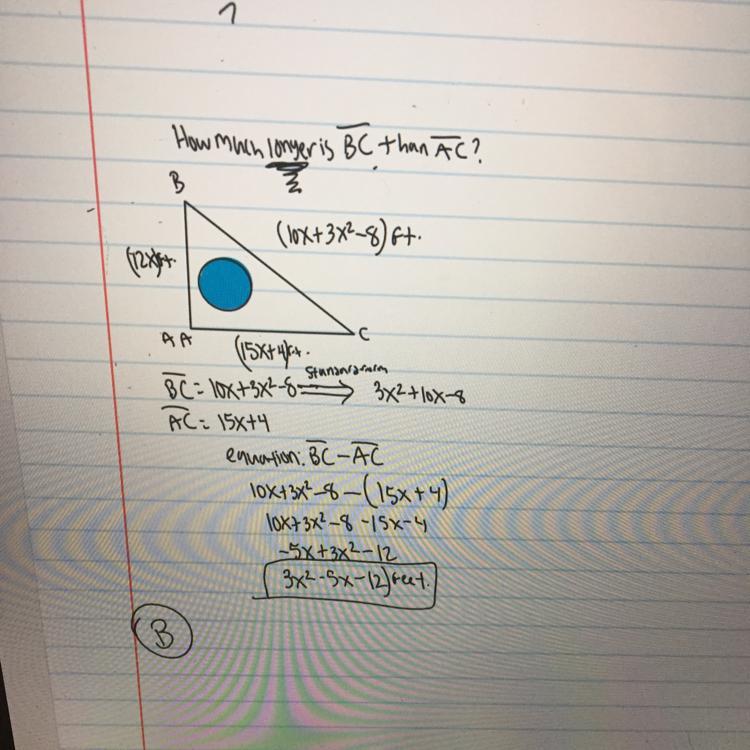 How much longer is BC than AC?
B
(10x+3x²-8) ft.
(12x)ft.
A A
C
(15x+4)ft.
BC = 10x+3x²-8 ⟹ 3x²+10x-8
AC = 15x+4
equation: BC - AC
10x+3x²-8-(15x+4)
10x+3x²-8-15x-4
-5x+3x²-12
3x²-5x-12) feet.
B